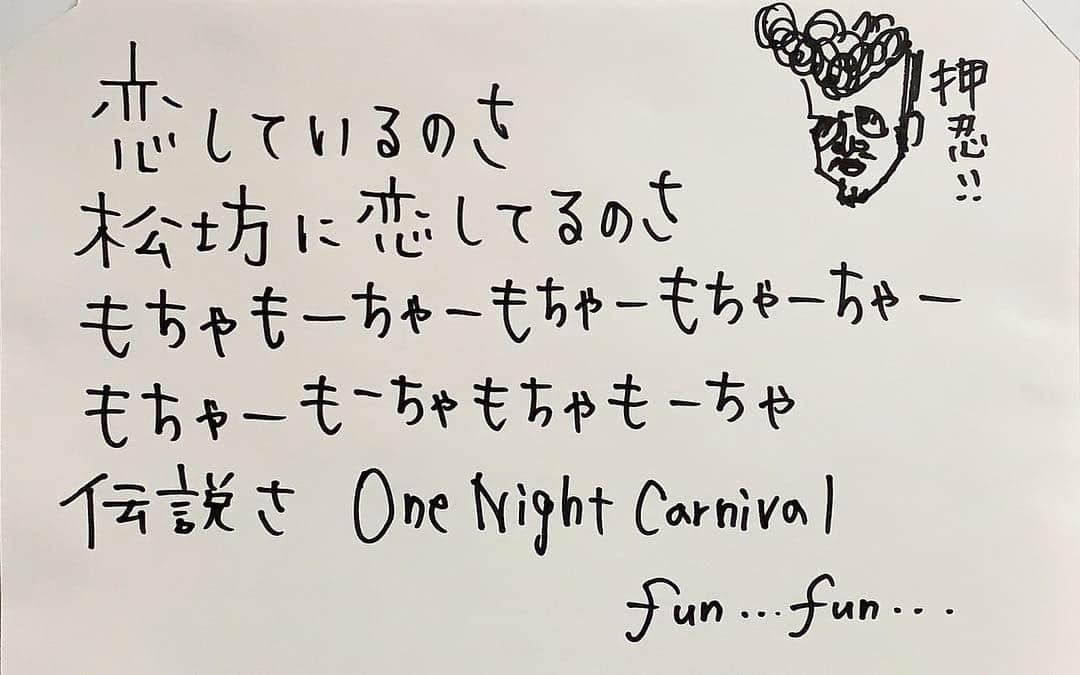 恋しているのさ
松坊に恋してるのさ
もちゃもーちゃーもちゃーもちゃーちゃー
もちゃーもーちゃもちゃもーちゃ
伝説さ One Night Carnival
fun...fun...
押忍!!